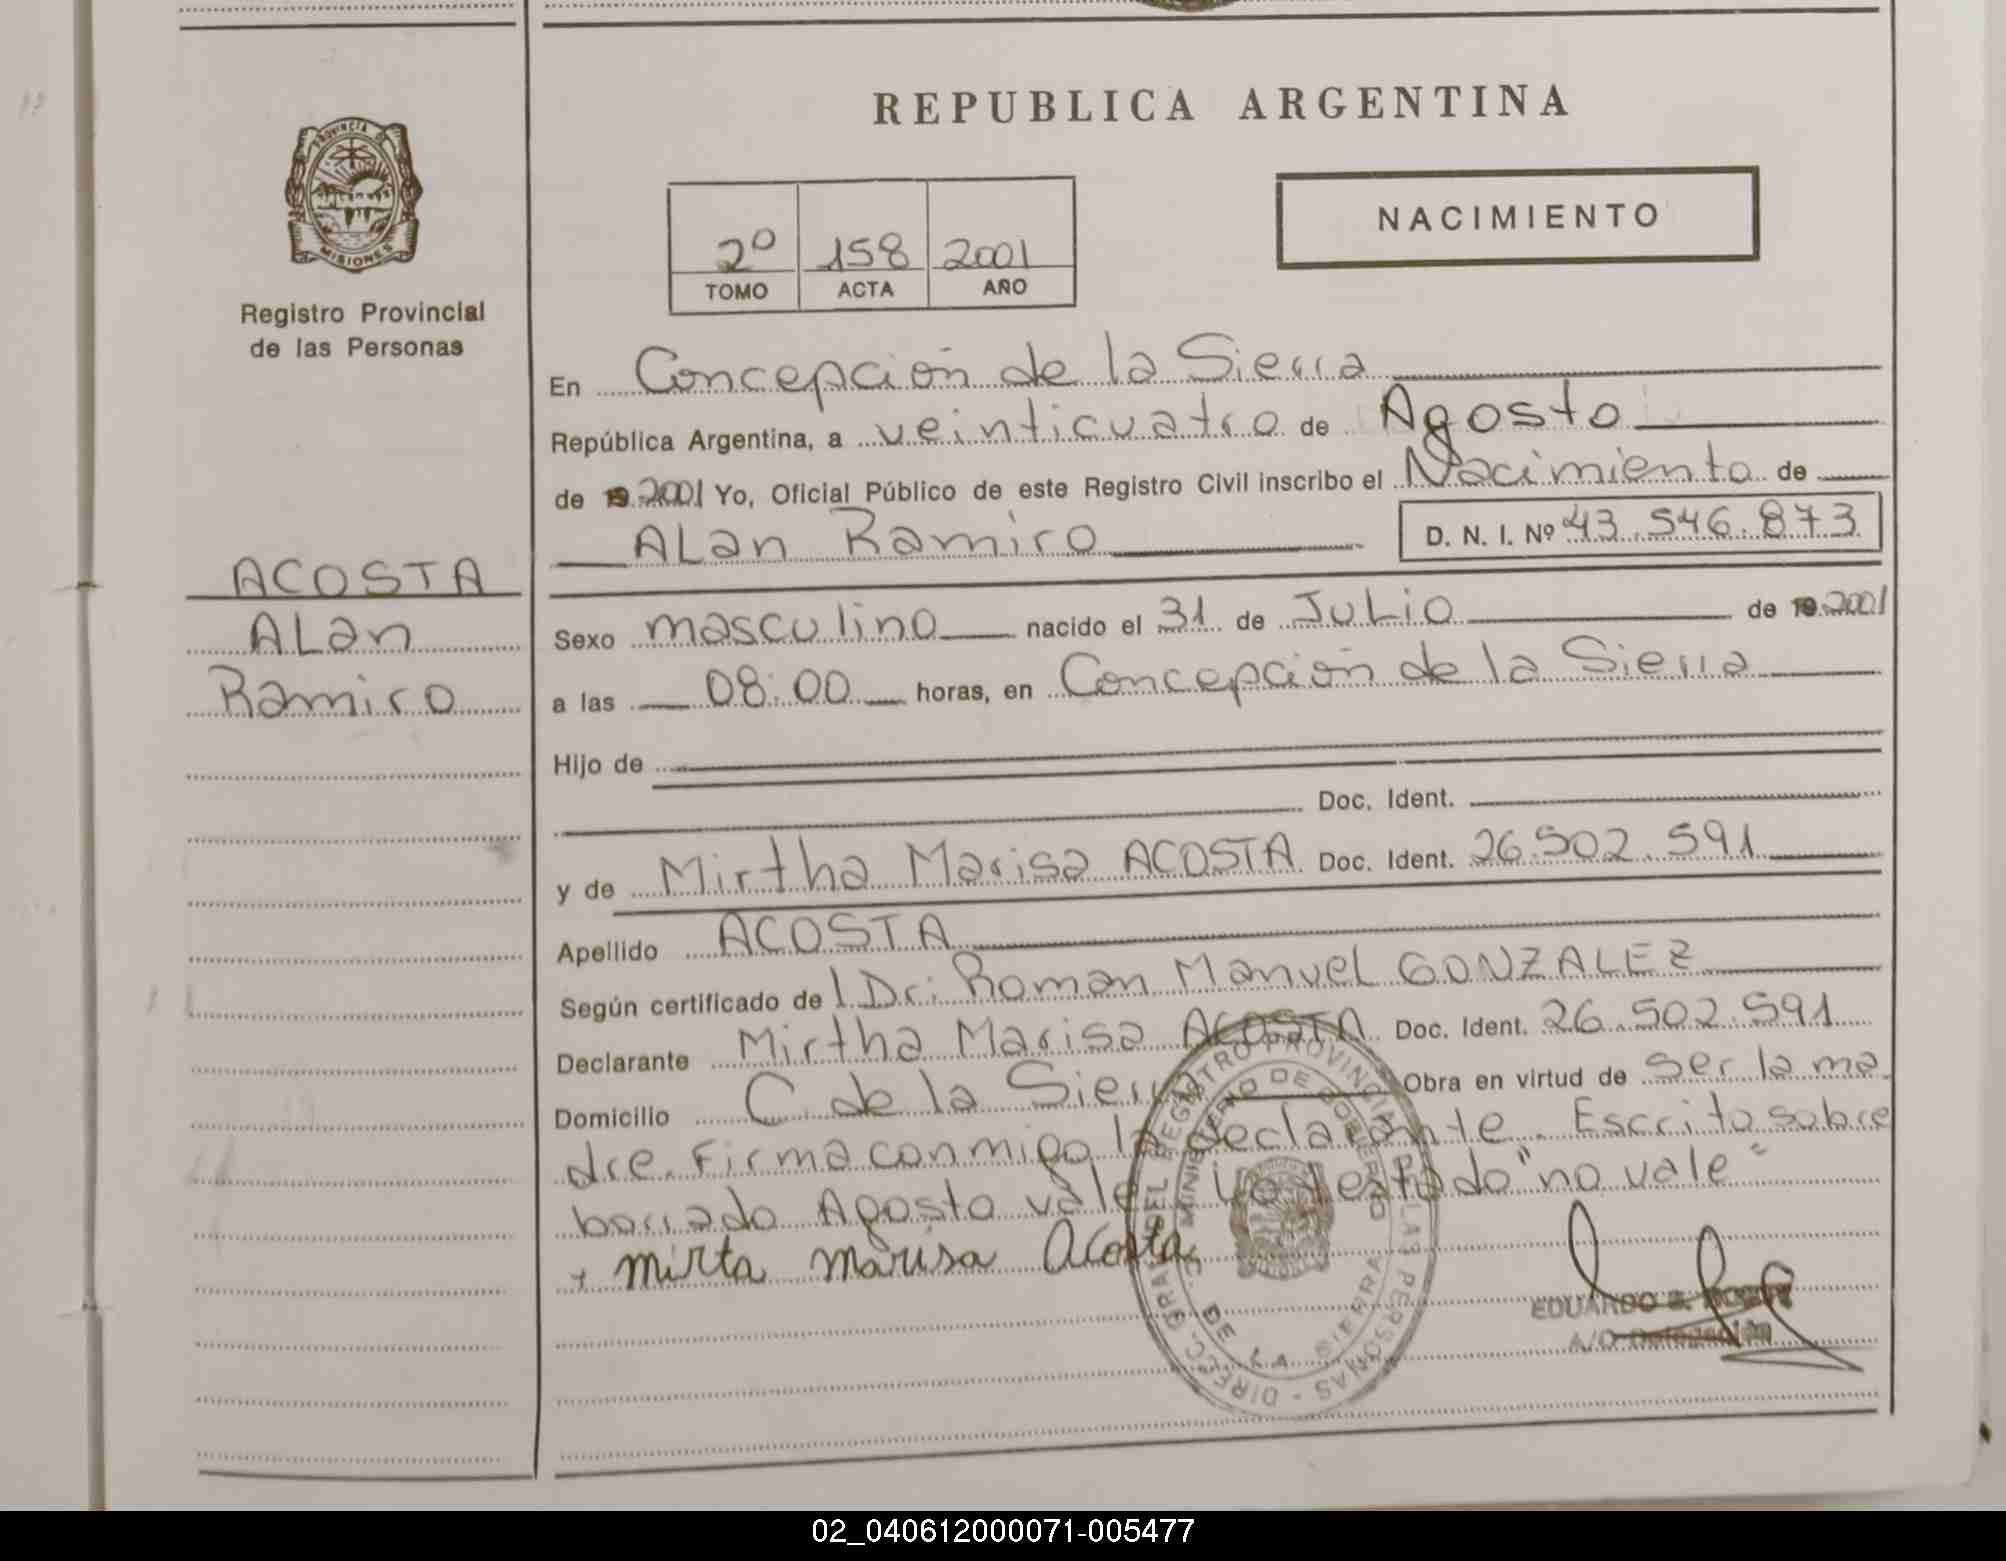 REPUBLICA ARGENTINA
PROVINCIA DE
MISIONES
Registro Provincial
de las Personas
NACIMIENTO
2º 158 2001
TOMO ACTA AÑO
En Concepción de la Sierra
República Argentina, a veinticuatro de Agosto
de 19 2001 Yo, Oficial Público de este Registro Civil inscribo el Nacimiento de
ALan Ramiro D. N. I. Nº 43.546.873
ACOSTA
ALan
Ramiro
Sexo masculino nacido el 31 de JuLio de 19 2001
a las 08:00 horas, en Concepción de la Sierra
Hijo de
Doc. Ident.
y de Mirtha Marisa ACOSTA Doc. Ident. 26.502.591
Apellido ACOSTA
Según certificado de l Dr: Roman Manuel GONZALEZ
Declarante Mirtha Marisa ACOSTA Doc. Ident. 26.502.591
Domicilio C. de la Sierra Obra en virtud de ser la ma
dre. Firma conmigo la declarante. Escrito sobre
borrado Agosto vale. Lo testado "no vale"
+ mirta marisa Acosta
DIREC. GRAL. DEL REGISTRO PROVINCIAL DE LAS PERSONAS
MINISTERIO DE GOBIERNO
DE LA SIERRA
EDUARDO
A/C Delegación
02_040612000071-005477